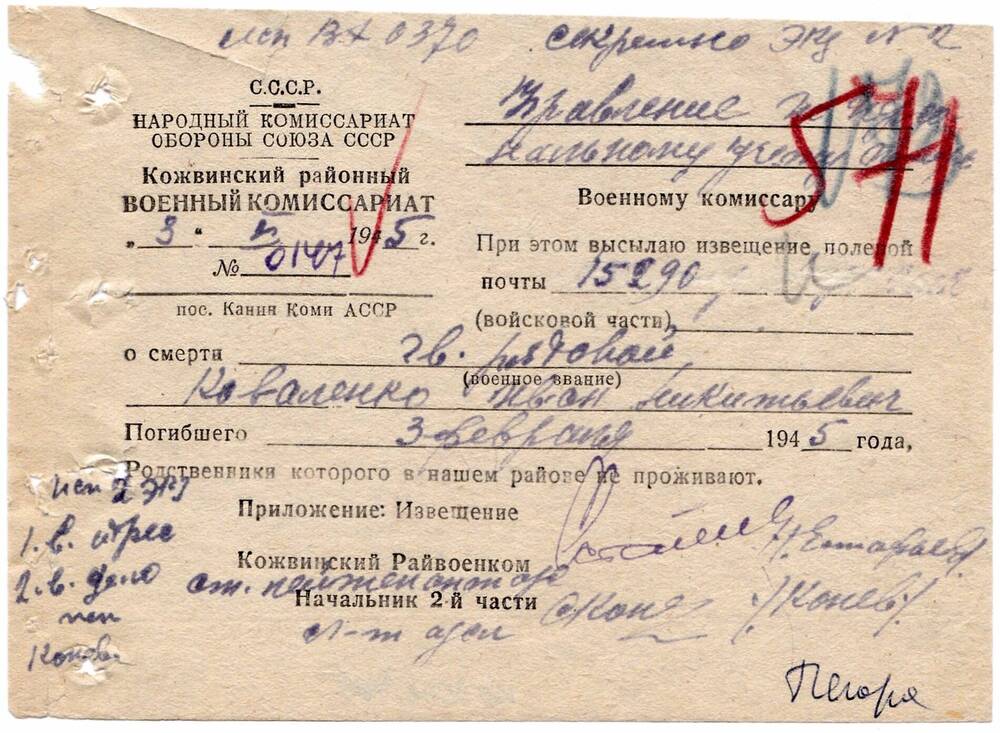 исп вх 0370 секретно экз N 2
С.С.С.Р.
НАРОДНЫЙ КОМИССАРИАТ
ОБОРОНЫ СОЮЗА СССР
Кожвинский районный
ВОЕННЫЙ КОМИССАРИАТ
„3“ 1945 г.
№ 0147
пос. Канин Коми АССР
Управление
нальному учету
Военному комиссару
При этом высылаю извещение полевой
почты 15290
(войсковой части)
о смерти гв. рядовой
(военное звание)
Коваленко Иван Никитьевич
Погибшего 3 февраля 1945 года,
Родственники которого в нашем районе не проживают.
Приложение: Извещение
Кожвинский Райвоенком
ст. лейтенант адм
Начальник 2-й части /Конев/
л-т адм
исп 2 экз
1. в. адрес
2. в. дело
исп
Конев
Печора